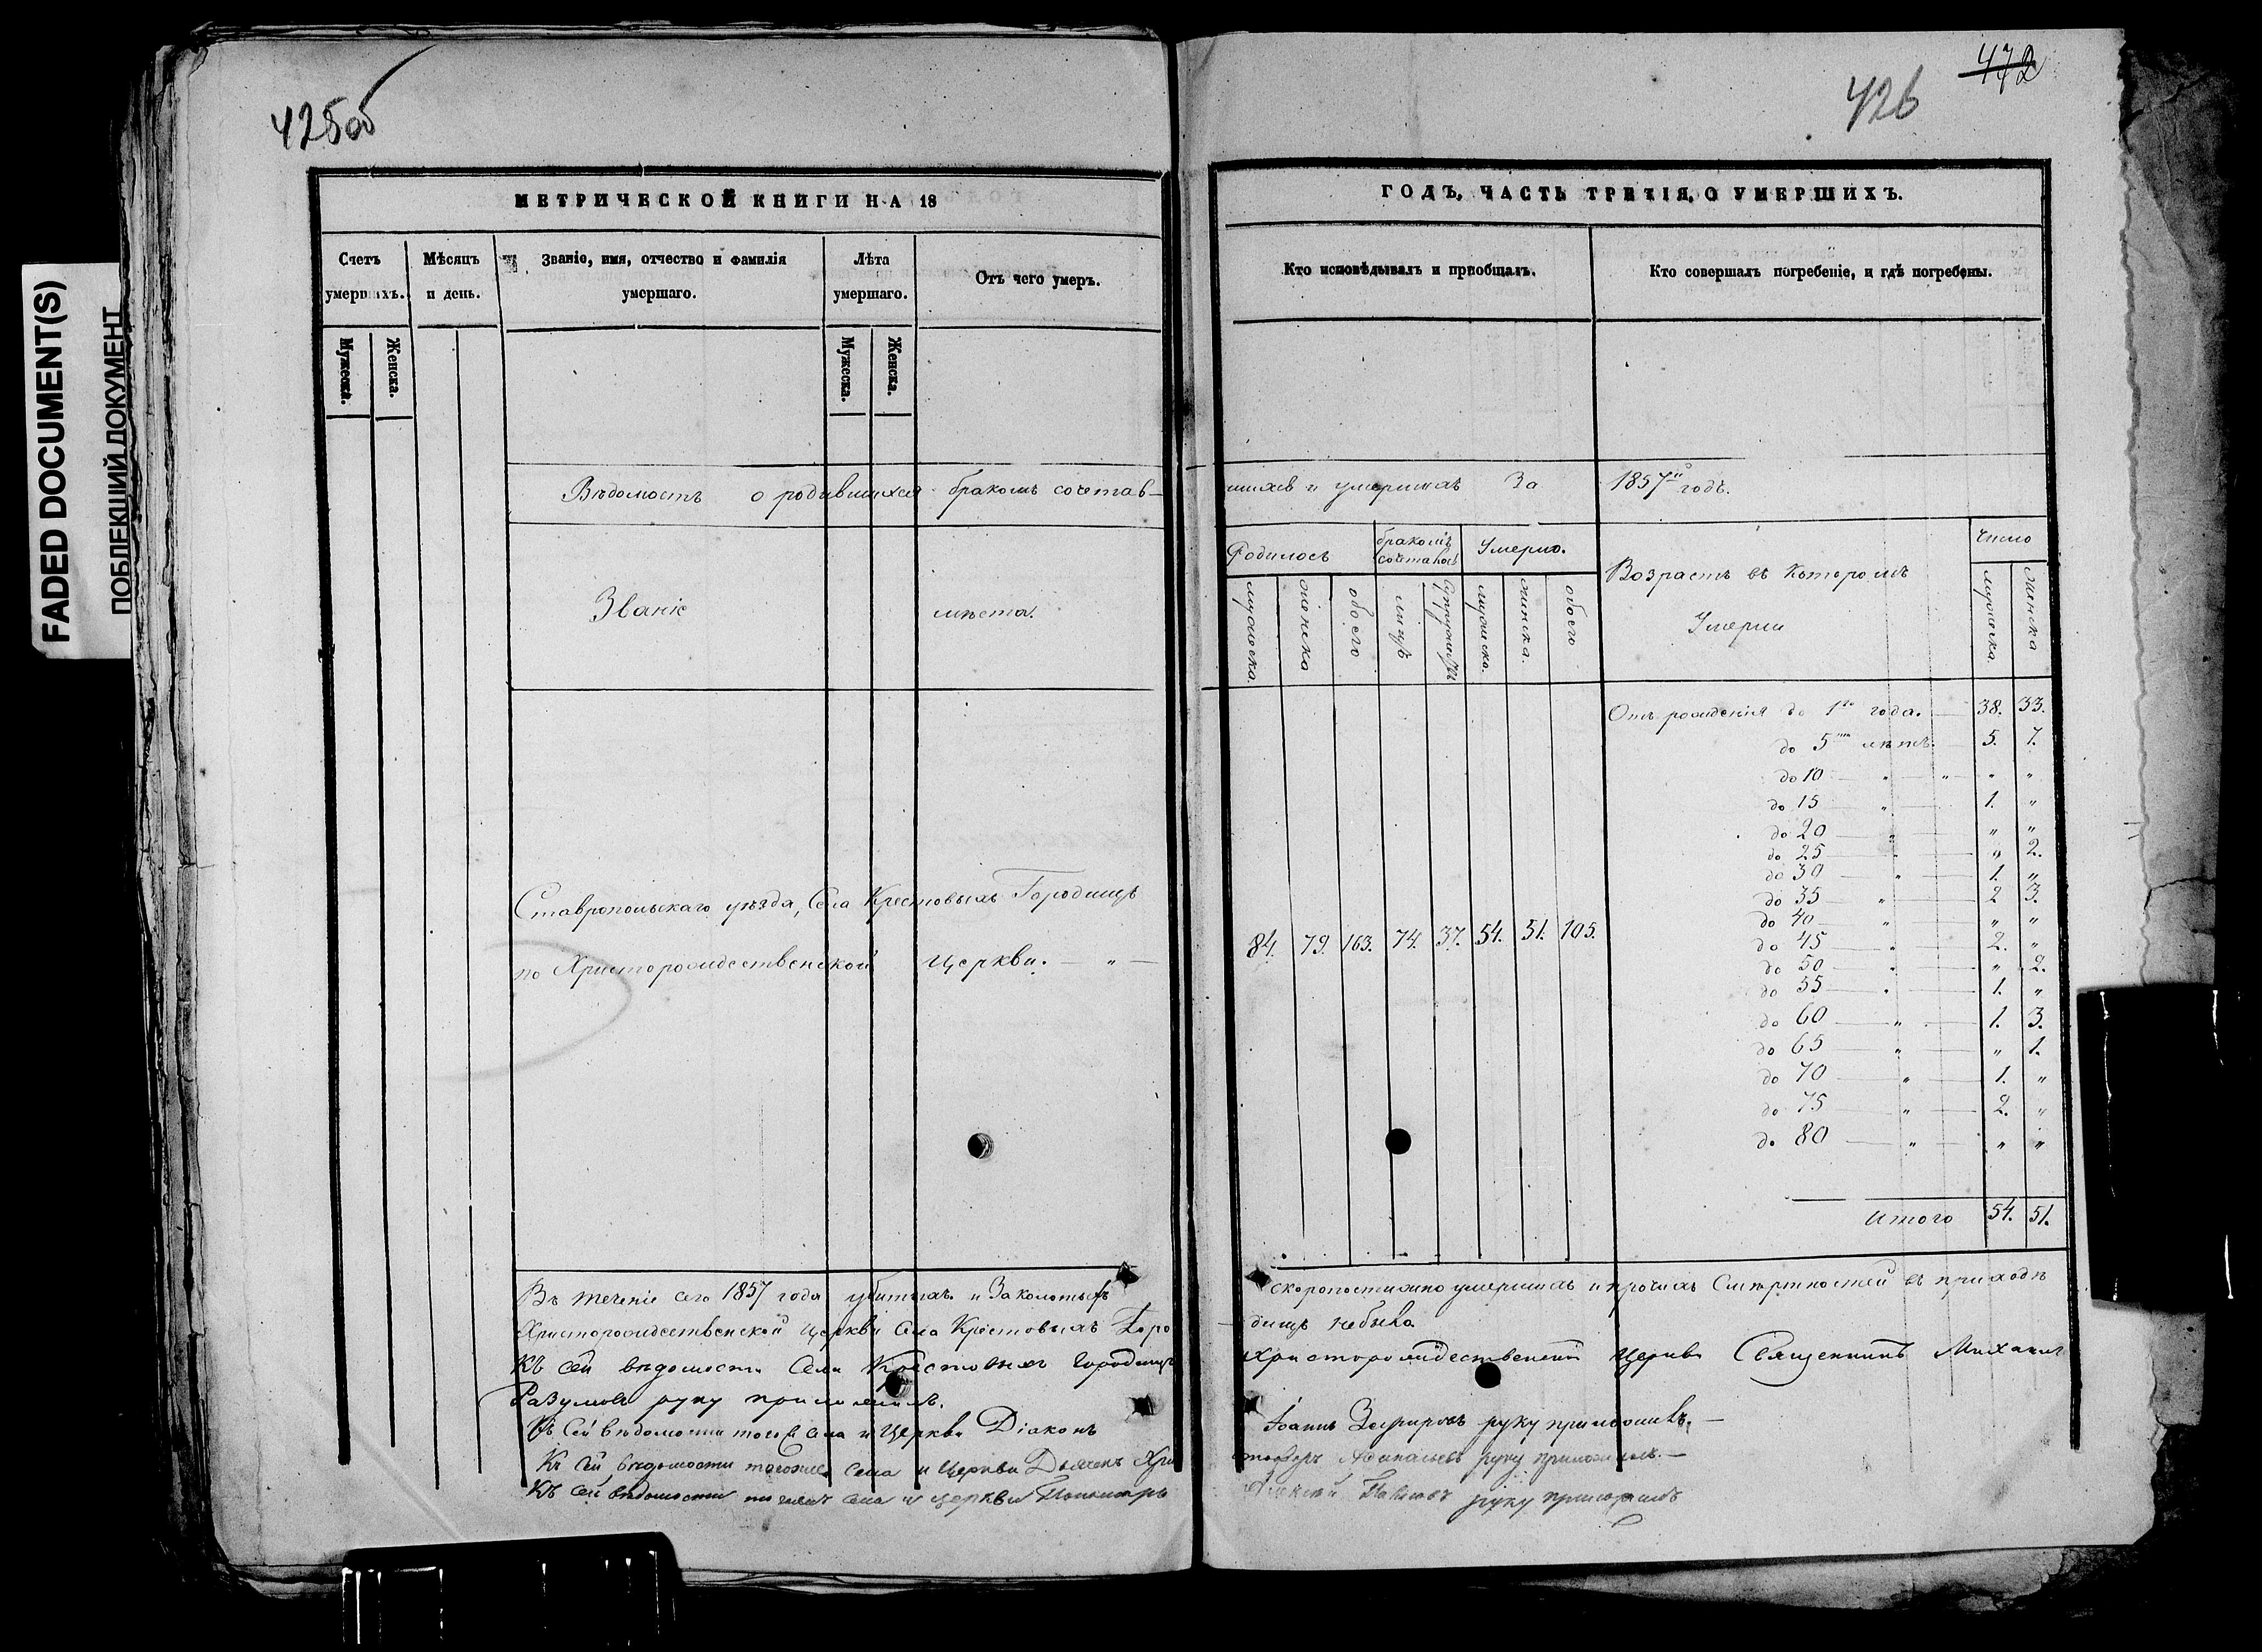 425об
426
472
FADED DOCUMENT(S)
ПОБЛЕКШИЙ ДОКУМЕНТ
МЕТРИЧЕСКОЙ КНИГИ НА 18
Счетъ умершихъ.
Мѣсяцъ и день.
Званіе, имя, отчество и фамилія умершаго.
Лѣта умершаго.
Отъ чего умеръ.
Мужеска.
Женска.
Мужеска.
Женска.
ГОДЪ, ЧАСТЬ ТРЕТІЯ, О УМЕРШИХЪ.
Кто исповѣдывалъ и пріобщалъ.
Кто совершалъ погребеніе, и гдѣ погребены.
Вѣдомость о родившихся бракомъ сочетав-
шихся и умершихъ За 1857й годъ.
Званіе мѣста.
Родилось
бракомъ сочеталось
Умерло.
Возрастъ въ которомъ Умерли
Число
мужеска.
женска
обоего
лицъ
супружествъ
мужеска.
женска.
обоего
мужеска
женска
Ставропольскаго уѣзда, Села Крестовыхъ Городищъ
по Христорождественской Церкви. — " —
84. 79. 163. 74. 37. 54. 51. 105.
Отъ рожденія до 1го года. — 38. 33.
до 5ти лѣтъ. 5. 7.
до 10 — " — " — " "
до 15 — " — 1. "
до 20 — " — " "
до 25 — " — " 2.
до 30 — " — 1. "
до 35 — " — 2 3.
до 40 — " — " "
до 45 — " — 2. "
до 50 — " — " 2.
до 55 — " — 1. "
до 60 — " — 1. 3.
до 65 — " — " 1.
до 70 — " — 1. "
до 75 — " — 2. "
до 80 — " — " "
Итого 54. 51.
Въ теченіе сего 1857 года убитыхъ и Заколотыхъ скоропостижно умершихъ и прочихъ Смертностей въ приходѣ
Христорождественской церкви Села Крестовыхъ Горо дищъ небыло
Къ сей вѣдомости Села Крестовыхъ Городищъ Христорождественской Церкви Священникъ Михаилъ
Разумовъ руку приложилъ.
Къ Сей вѣдомости тогоже Села и Церкви Діаконъ Іоаннъ руку приложилъ. —
Къ Сей вѣдомости тогоже села и Церкви Дьячекъ Хри стофоръ руку приложилъ. —
Къ сей вѣдомости тогоже села и церкви Пономарь Алексѣй Павловъ руку приложилъ